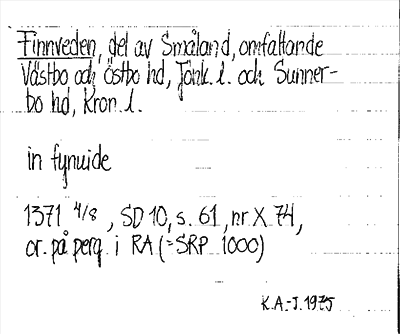 Finnveden, del av Småland, omfattande
Västbo och Östbo hd, Jönk. l. och Sunner-
bo hd, Kron. l.
in fynuide
1371 4/8, SD 10, s. 61, nr X 74,
or. på perg. i RA (=SRP 1000)
K.A.-J. 1975